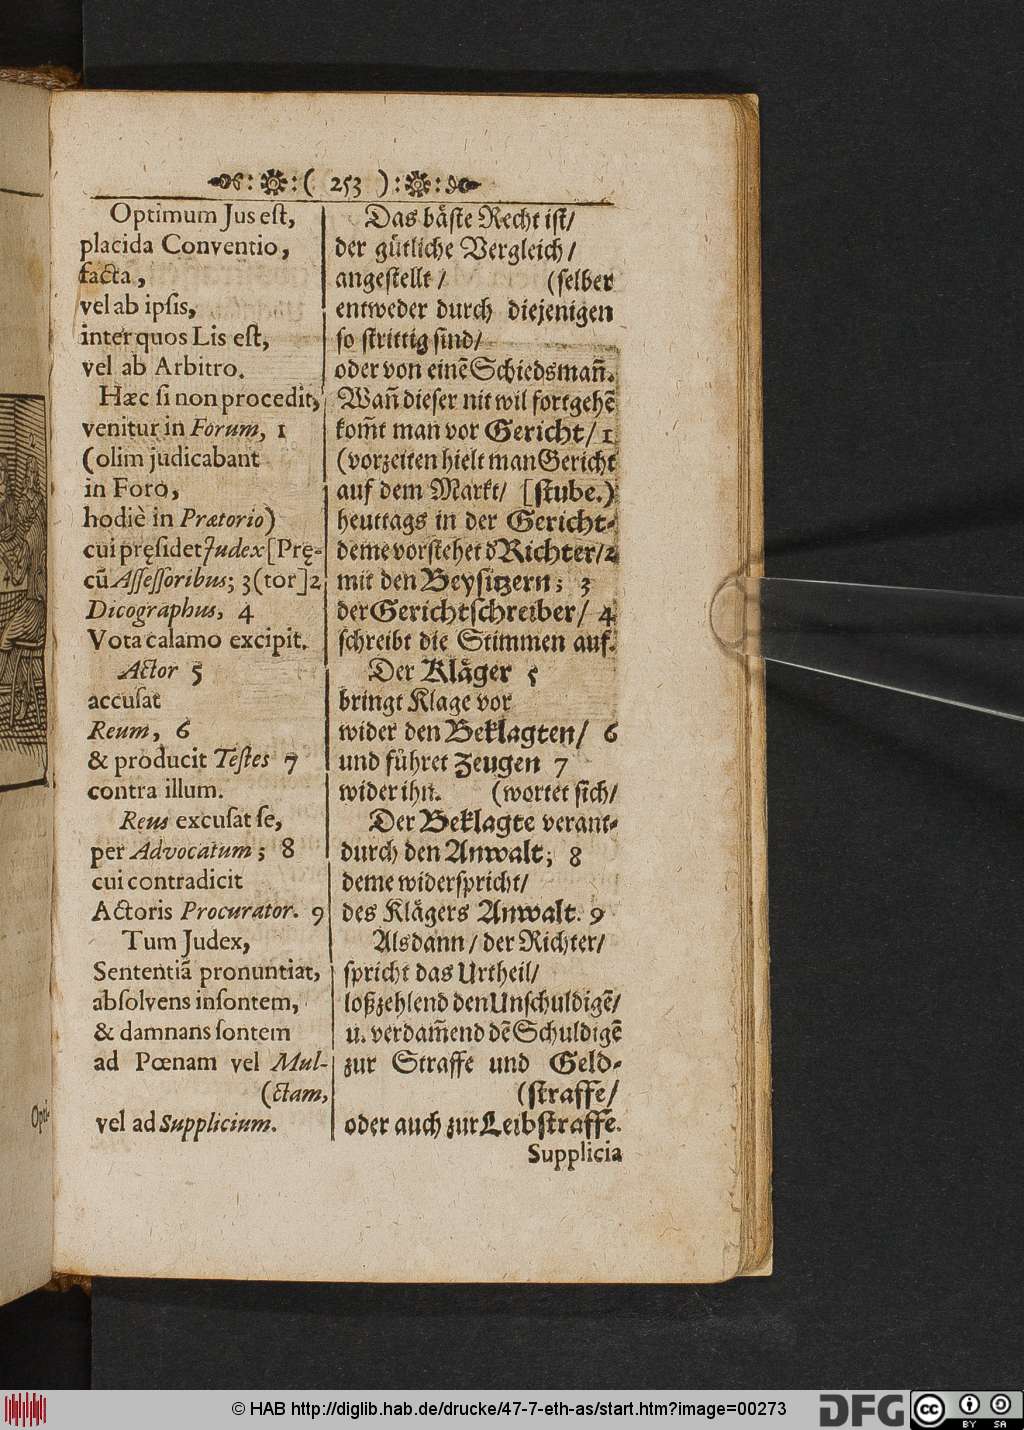 ( 253 )
Optimum Jus est,
placida Conventio,
facta,
vel ab ipsis,
inter quos Lis est,
vel ab Arbitro.
Hæc si non procedit,
venitur in Forum, 1
(olim judicabant
in Foro,
hodiè in Prætorio)
cui pręsidet Judex [Prę-
cū Assessoribus; 3 (tor] 2
Dicographus, 4
Vota calamo excipit.
Actor 5
accusat
Reum, 6
& producit Testes 7
contra illum.
Reus excusat se,
per Advocatum; 8
cui contradicit
Actoris Procurator. 9
Tum Judex,
Sententiā pronuntiat,
absolvens insontem,
& damnans sontem
ad Pœnam vel Mul-
(ctam,
vel ad Supplicium.
Das bäste Recht ist/
der gütliche Vergleich/
angestellt/ (selber
entweder durch diejenigen
so strittig sind/
oder von einē Schiedsmañ.
Wañ dieser nit wil fortgehē
kom̃t man vor Gericht/ 1
(vorzeiten hielt man Gericht
auf dem Markt/ [stube.)
heuttags in der Gericht-
deme vorstehet d' Richter/ 2
mit den Beysitzern; 3
der Gerichtschreiber/ 4
schreibt die Stimmen auf.
Der Kläger 5
bringt Klage vor
wider den Beklagten/ 6
und führet Zeugen 7
wider ihn. (wortet sich/
Der Beklagte verant-
durch den Anwalt; 8
deme widerspricht/
des Klägers Anwalt. 9
Alsdann/ der Richter/
spricht das Urtheil/
loßzehlend den Unschuldigē/
u. verdam̃end dē Schuldigē
zur Straffe und Geld-
(straffe/
oder auch zur Leibstraffe.
Supplicia
Opti-
© HAB http://diglib.hab.de/drucke/47-7-eth-as/start.htm?image=00273
DFG
cc
BY SA